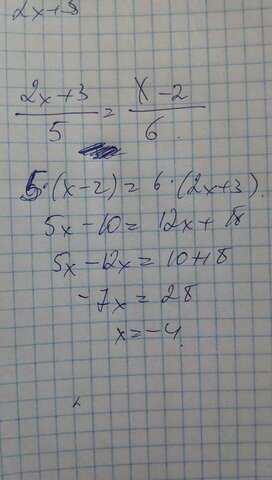 2x+8
(2x+3)/5 = (x-2)/6
5·(x-2) = 6·(2x+3)
5x-10 = 12x+18
5x-12x = 10+18
-7x = 28
x = -4